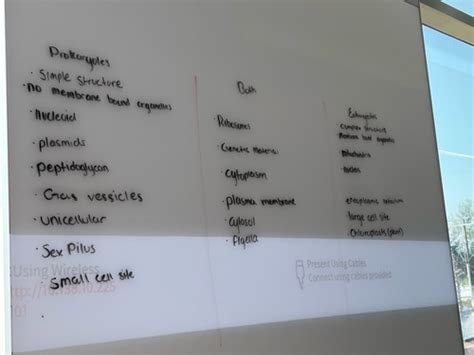 Prokaryotes
· Simple Structure
· No membrane bound organelles
· Nucleoid
· plasmids
· Peptidoglycan
· Gas vessicles
· Unicellular
· Sex Pilus
· Small cell site
·
Both
· Ribosomes
· Genetic Material
· Cytoplasm
· plasma membrane
· Cytosol
· flgella
Eukaryotes
· complex structure
membrane bound organelles
· Mitochondria
· nucleus
· endoplasmic reticulum
· large cell site
· Chloroplasts (plant)
Using Wireless
http://10.198.10.225
Present Using Cables
Connect using cables provided